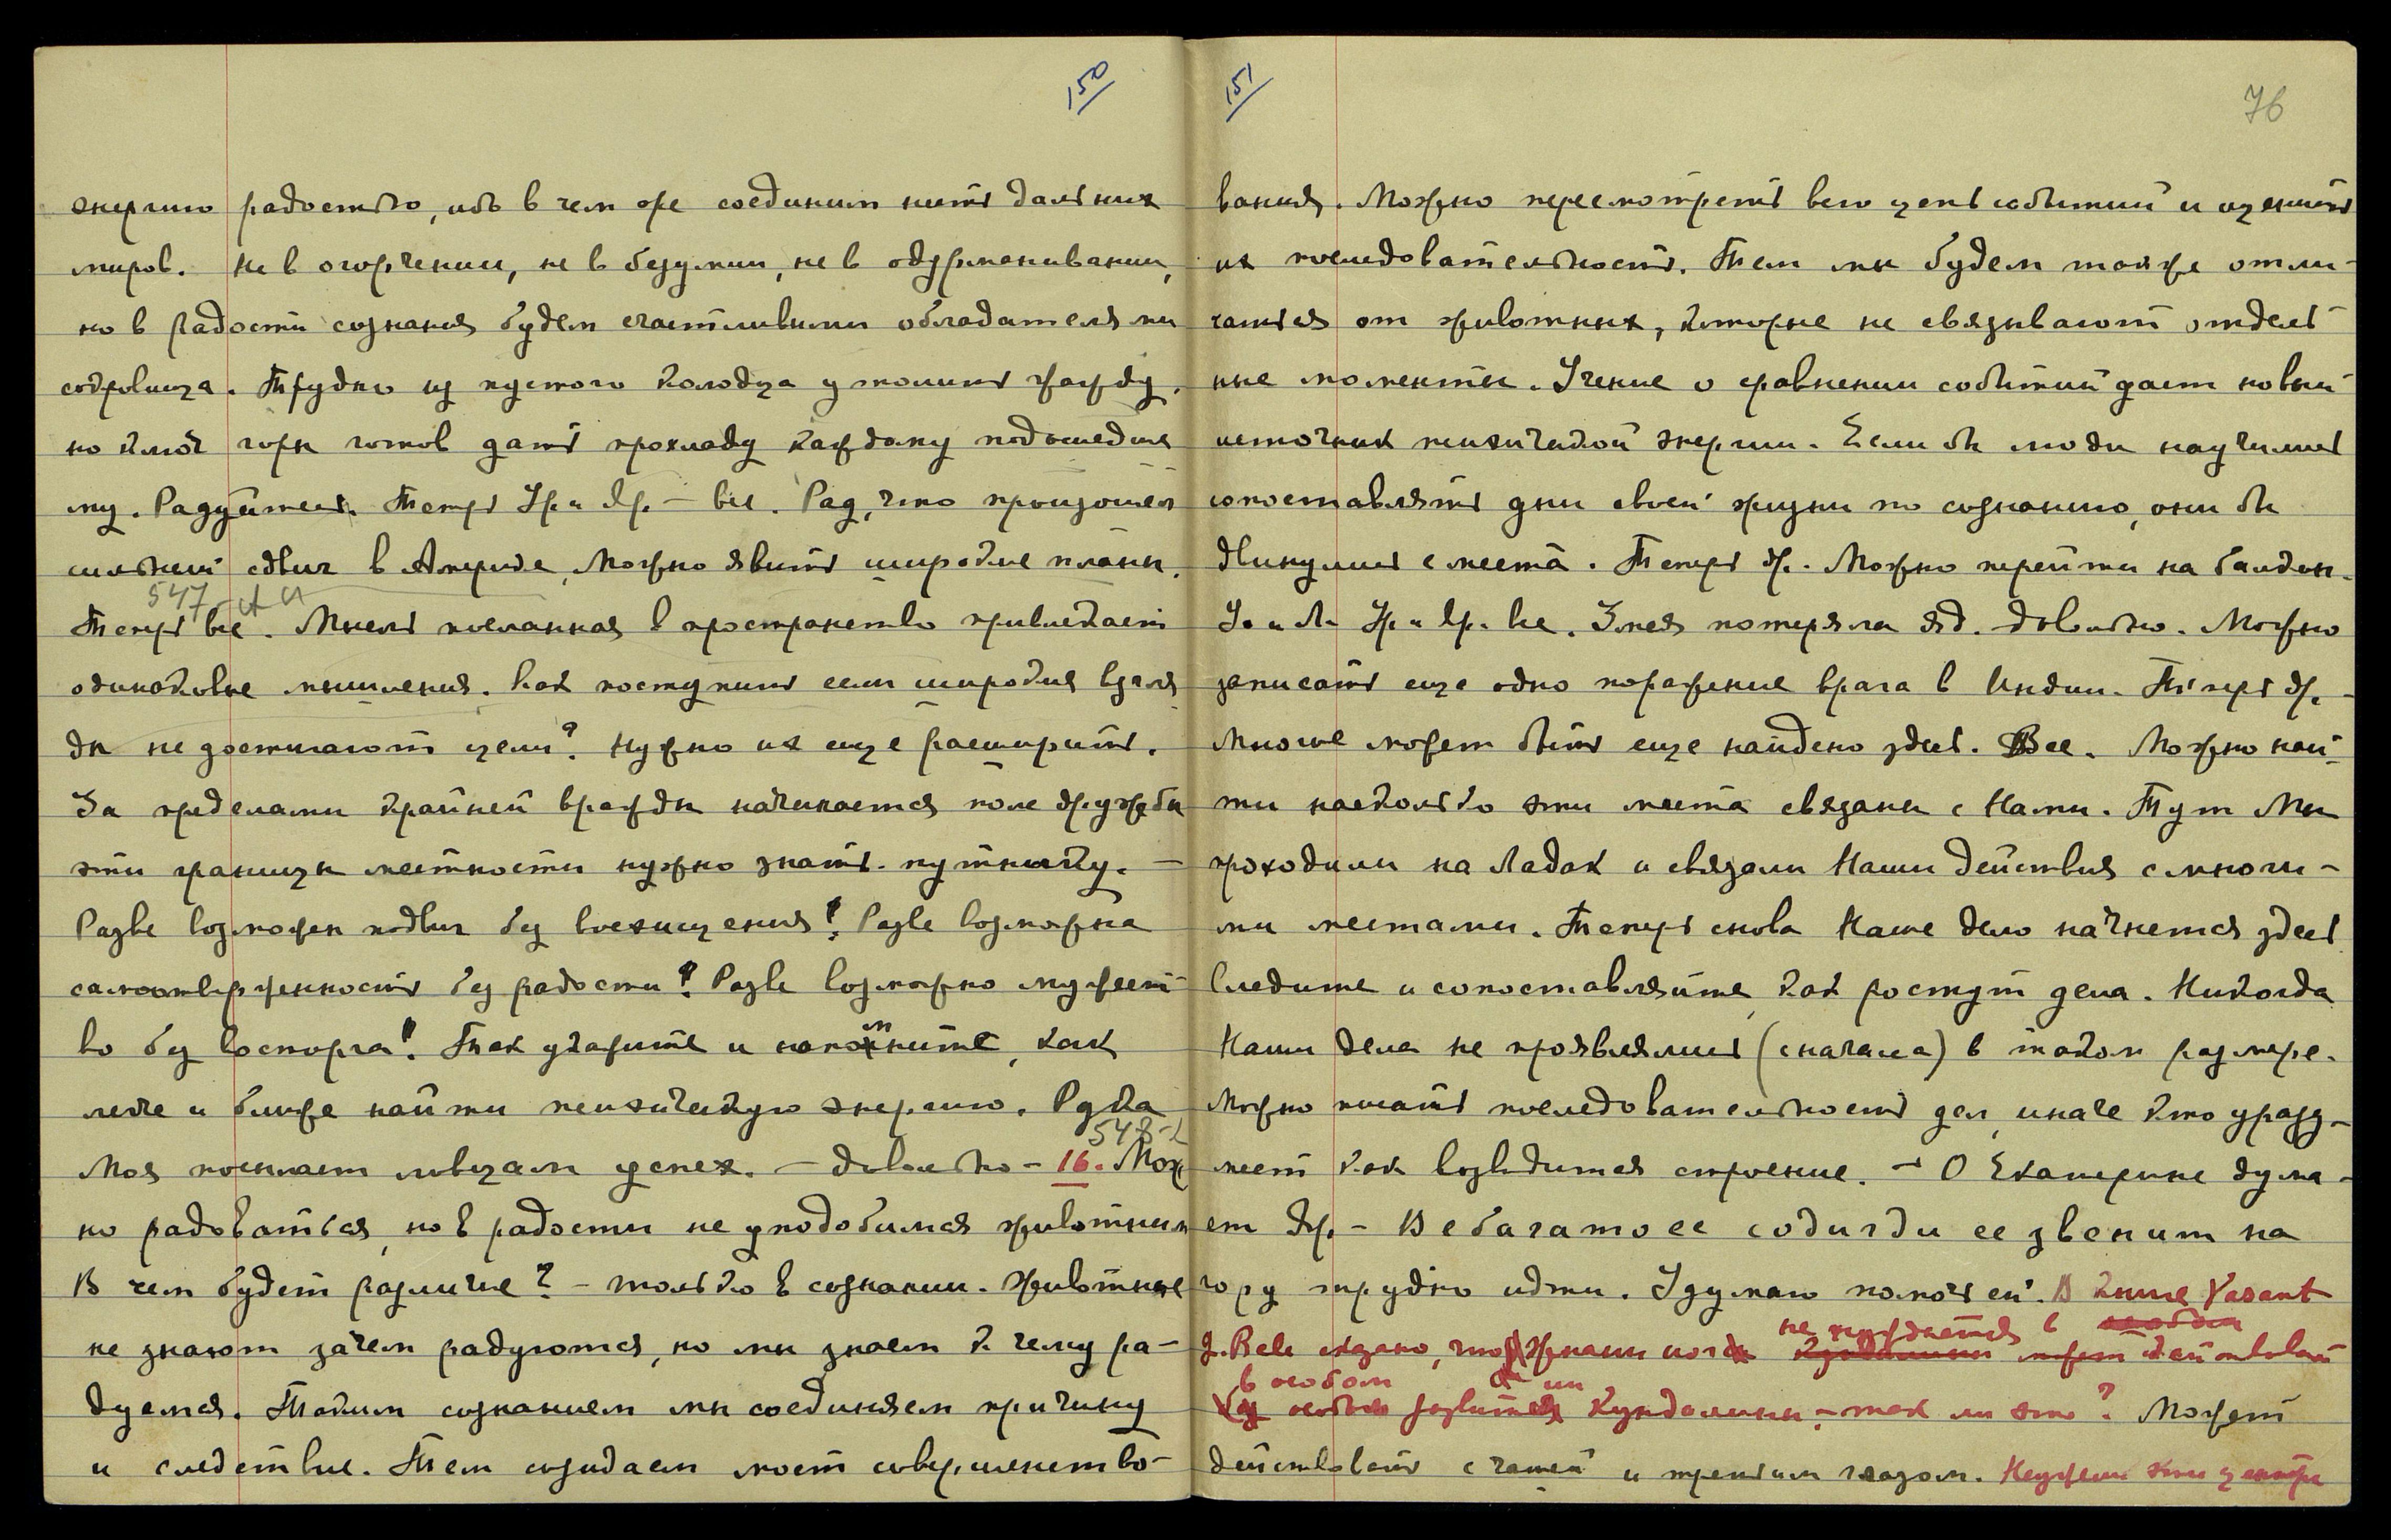 150
энергию радостью, ибо в чем же соединим нить дальних
миров. Не в огорчении, не в безумии, не в одурманивании,
но в радости сознания будем счастливыми обладателями
сокровища. Трудно из пустого колодца утолить жажду,
но ключ горы готов дать прохладу каждому подошедше
му. Радуйтесь. Теперь Ур. и Др. – все. Рад, что произошел
сильный сдвиг в Америке, Можно явить широкие планы.
547
Теперь все. Мысль посланная в пространство привлекает
одинаковые мышления. Как поступить если широкие взгля
ды не достигают цели? Нужно их еще расширить.
За пределами крайней вражды начинается поле дружбы
эти границы местности нужно знать путнику. –
Разве возможен подвиг без восхищения? Разве возможна
самоотверженность без радости? Разве возможно мужест
во без восторга? Так укажите и напомните, как
легче и ближе найти психическую энергию. Рука
548
Моя посылает ловцам успех. – Довольно – 16. Мож
но радоваться, но в радости не уподобимся животным
В чем будет различие? – только в сознании. Животные
не знают зачем радуются, но мы знаем к чему ра-
дуемся. Таким сознанием мы соединяем причину
и следствие. Тем создаем мост совершенство-
151
76
вания. Можно пересмотреть всю цепь событий и оценить
их последовательность. Тем мы будем также отли-
чаться от животных, которые не связывают отдель
ные моменты. Учение о сравнении событий дает новый
источник психической энергии. Если бы люди научились
сопоставлять дни своей жизни по сознанию, они бы
двинулись с места. Теперь др. Можно перейти на
Ур. и Др. все. Змея потеряла яд. Довольно. Можно
записать еще одно поражение врага в Индии. Теперь др. –
Многие может быть еще найдено здесь. Все. Можно най-
ти насколько эти места связаны с Нами. Тут Мы
проходили на Ладак и связали Наши действия с многи-
ми местами. Теперь снова Наше дело начнется здесь
Следите и сопоставляйте, как растут дела. Никогда
Наши дела не проявлялись (сначала) в таком размере.
Можно писать последовательность дел, иначе кто уразу-
меет как возводится строение. – О Екатерине дума-
ет др. – Все богатое ее звенит на
гору трудно идти. Удумаю помочь ей. В книге Vasant
J. Rele сказано, что не нуждается в
в особом развитии Кундалини, – так ли это? Может
действовать с чашей и третьим глазом. Неужели эти центры